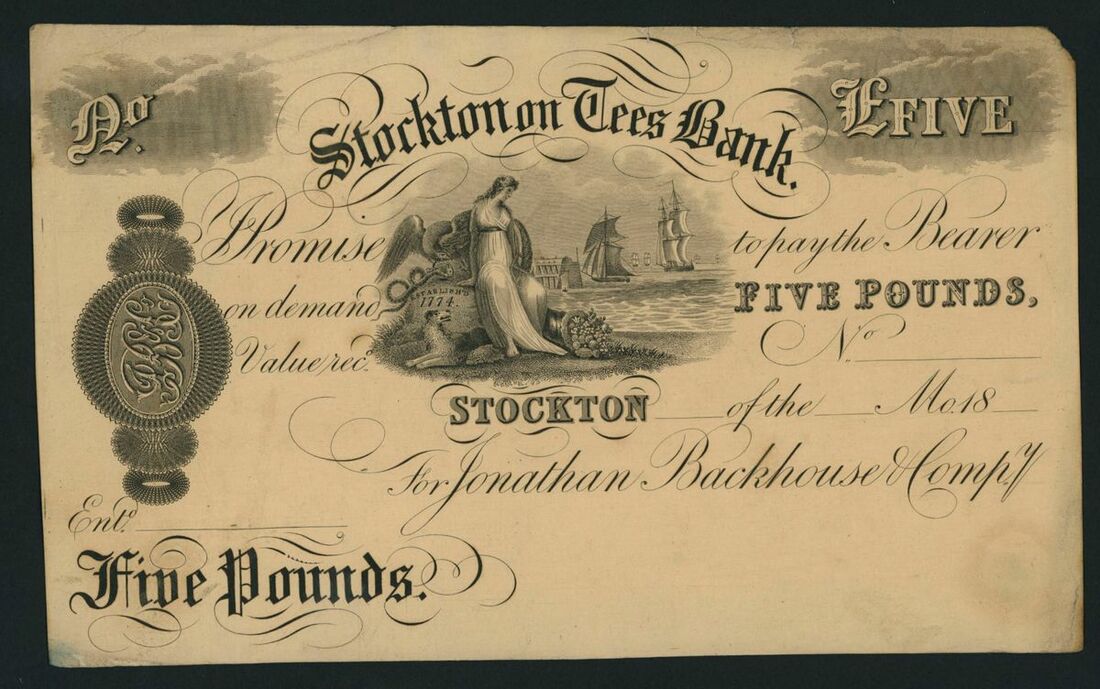 No.
Stockton on Tees Bank.
£FIVE
I Promise to pay the Bearer
on demand FIVE POUNDS,
ESTABLISHD
1774.
Value recd. No
STOCKTON of the Mo. 18
For Jonathan Backhouse & Compy
Entd.
Five Pounds.